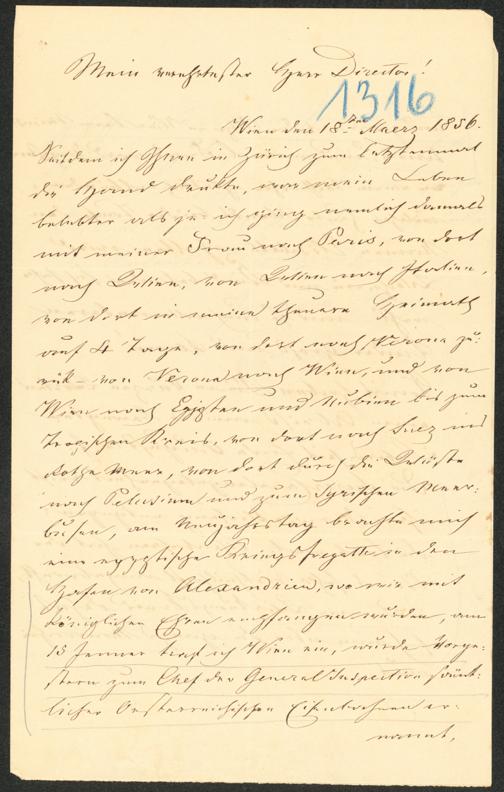 Mein verehrtester Herr Director!
1316
Wien den 18ten Maerz 1856.
Seitdem ich Ihnen in Zürich zum Letztenmal
die Hand drükte, war mein Leben
belebter als je ich ging nemlich damals
mit meiner Frau nach Paris, von dort
nach , von nach Italien,
von dort in meine theuere Heimath
auf 4 Tage, von dort nach Verona zu-
rük – von Verona nach Wien, und von
Wien nach Egipten und Nubien bis zum
Tropischen Kreis, von dort nach Suez ins
Rothe Meer, von dort durch die Wüste
nach Pelusium und zum Syrischen Meer-
busen, am Neujahrstag brachte mich
eine egyptische Kriegsfregatte in den
Hafen von Alexandrien, wo wir mit
Königlichen Ehren empfangen wurden, am
15 Jenner traf ich Wien ein, wurde Vorge-
stern zum Chef der General Inspection sämt-
licher Oesterreichischen Eisenbahnen er-
nannt,